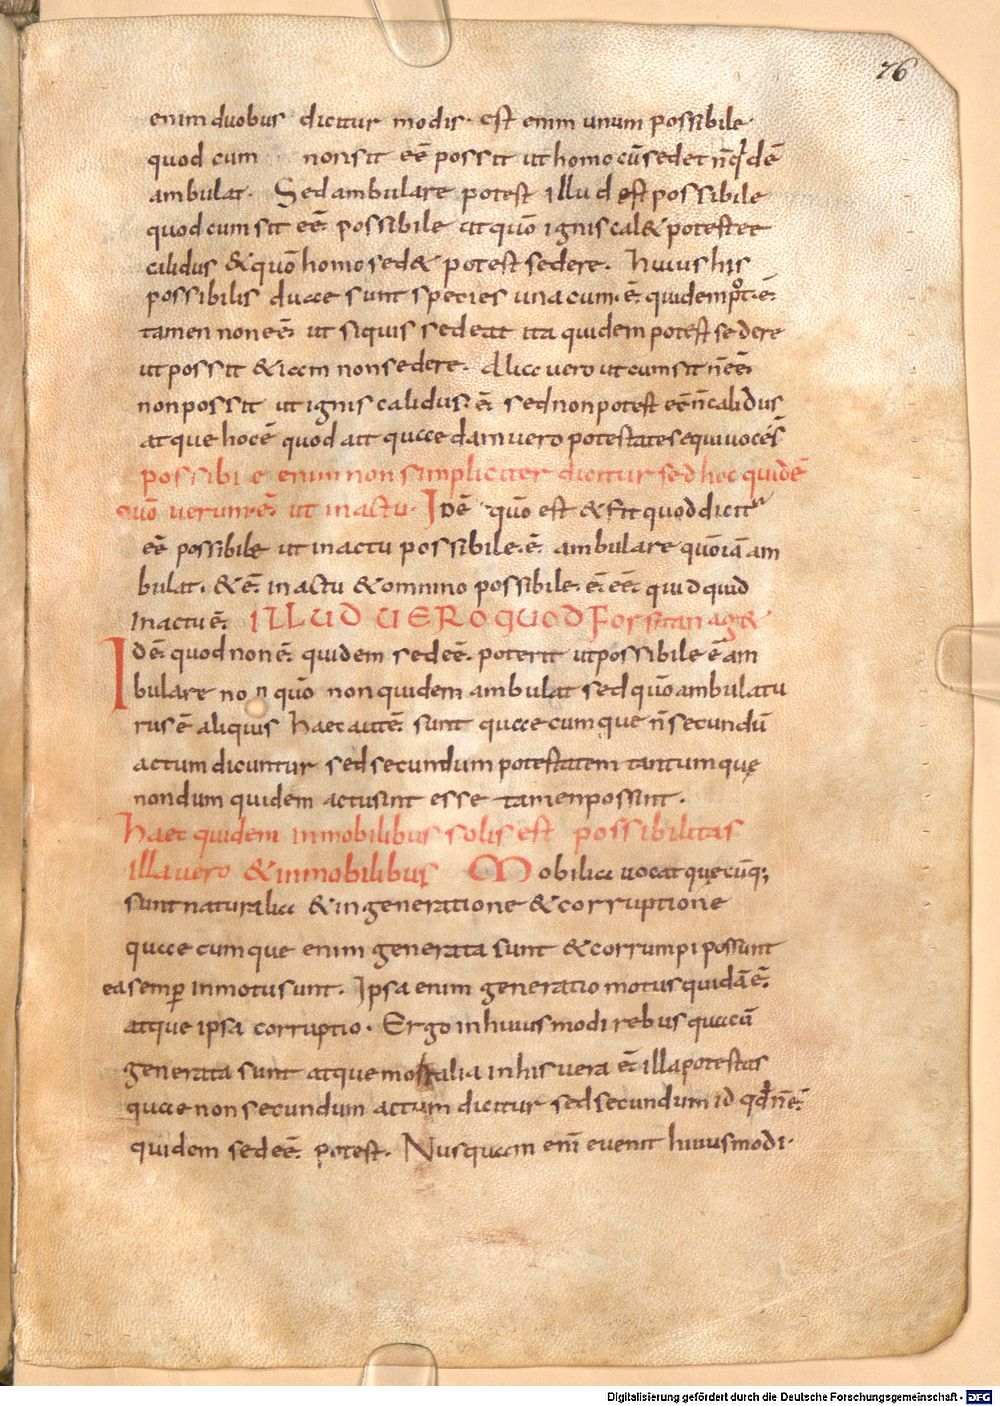 76
enim duobus dicitur modis. est enim unum possibile.
quod cum non sit eē possit ut homo cū sedet n̄ qͥdē
ambulat. Sed ambulare potest illud est possibile
quod cum sit eē possibile at quō ignis cal& potest et
calidus & quō homo sed& potest sedere. huius his
possibilis duae sunt species una cum .ē. quidem p̊t .ē.
tamen non eē. ut siquis sedeat ita quidem potest sedere
ut possit & iam non sedere. Alia vero ut cum sit n̄ eē
non possit ut ignis calidus .ē. sed non potest eē n̄ calidus
atque hoc ē quod ait quaedam vero potestates equivocē s̄
possibile enim non simpliciter dicitur sed hoc quidē
quō verum ē. ut in actu. IDĒ quō est & fit quod dicit
eē possibile ut in actu possibile .ē. ambulare quōiā am
bulat. & ē. in actu & omnino possibile. ē. eē. quidquid
in actu ē. ILLUD VERO QUOD Forsitan ag&
Idē. quod non ē. quidem sed eē. poterit ut possibile ē am
bulare non quō non quidem ambulat sed quō ambulatu
rus ē aliquis haec autē. sunt quaecumque n̄ secundū
actum dicuntur sed secundum potestatem tantum quę
nondum quidem actu sint esse tamen possint.
haec quidem in mobilibus solis est possibilitas
illa vero & inmobilibus Mobilia vocat quęcūq;
sunt naturalia & in generatione & corruptione
quaecumque enim generata sunt & corrumpi possunt
ea semp̄ in motu sunt. Ipsa enim generatio motus quidā ē.
atque ipsa corruptio. Ergo in huiusmodi rebus quacū
generata sunt atque mortalia in his vera ē. illa potestas
quae non secundum actum dicitur sed secundum id qđ n̄ ē.
quidem sed eē. potest. Nusquam eni evenit huiusmodi.
Digitalisierung gefördert durch die Deutsche Forschungsgemeinschaft - DFG